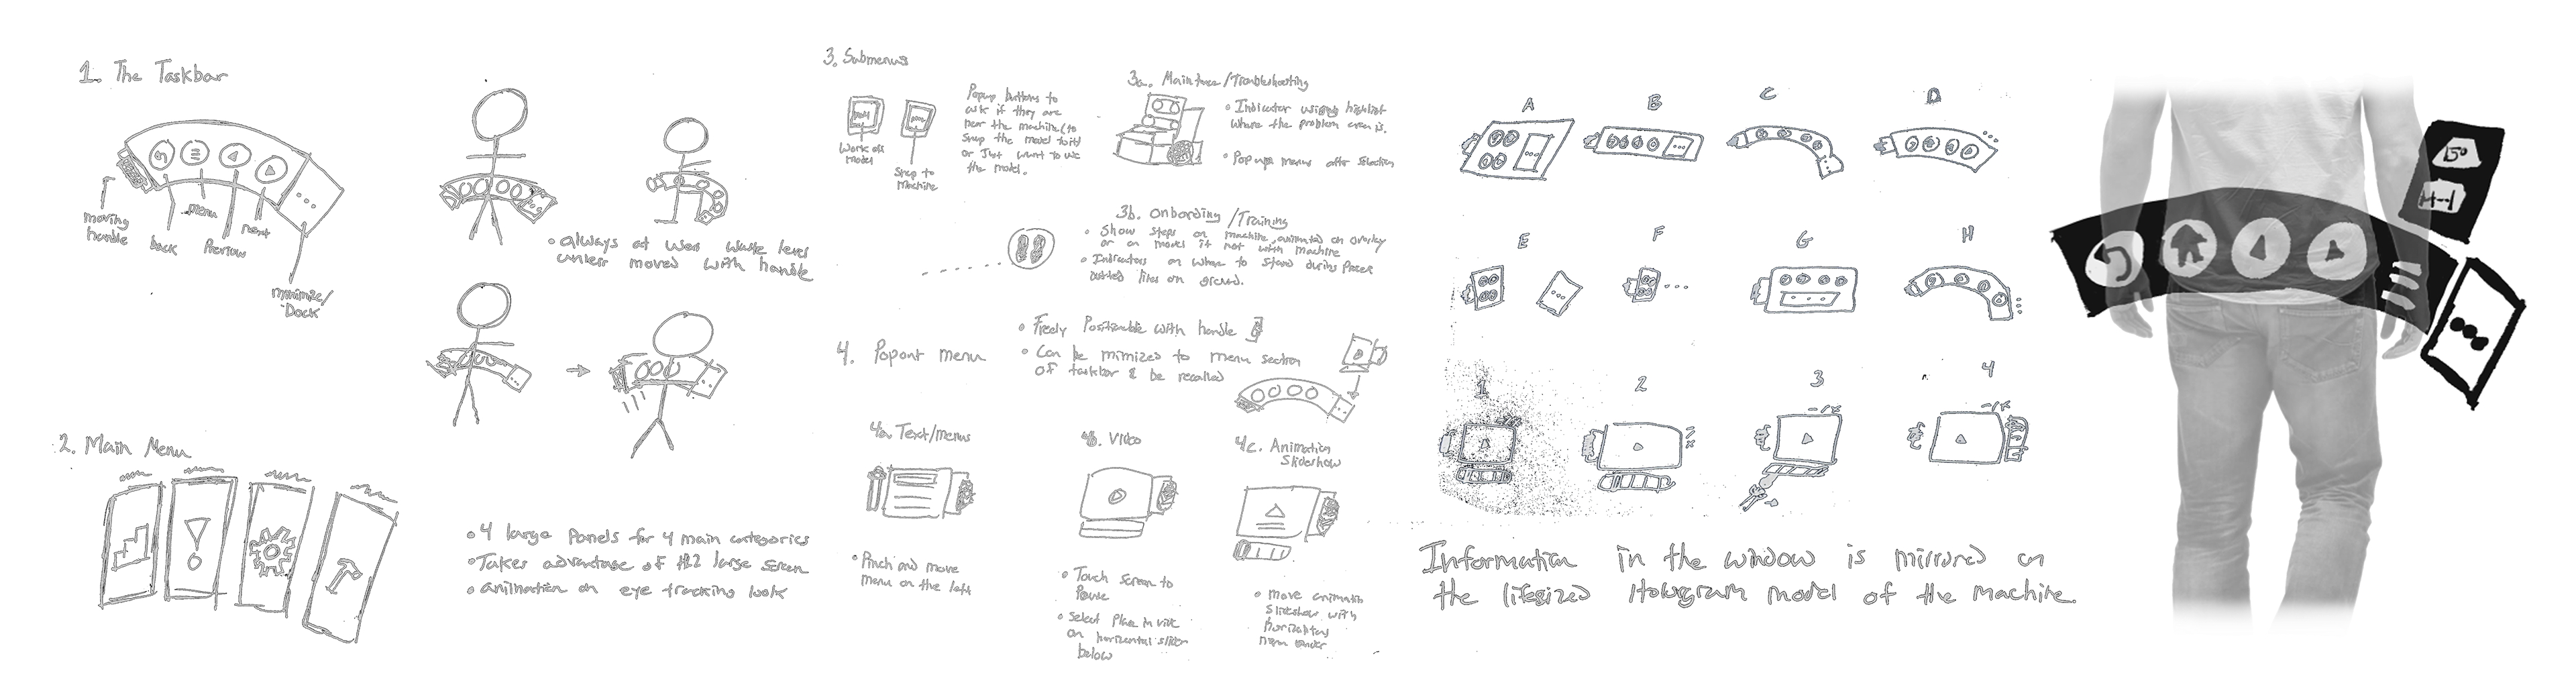 1. The Taskbar
moving
handle
back
menu
Preview
next
minimize/
Dock
• always at user waste level
unless moved with handle
2. Main Menu
• 4 large Panels for 4 main categories
• Takes advantage of HL2 large screen
• animation on eye tracking look
3. Submenus
Work on
model
Snap to
Machine
Popup buttons to
ask if they are
near the machine (to
Snap the model to it)
or Just want to use
the model.
3a. /Troubleshooting
• Indicator highlight
where the problem area is.
• Popup menus after selection
3b. Onbording /Training
• Show steps on machine, animated on overlay
or on model if not with machine
• Indicators on where to stand during
dotted lines on ground.
4. Popout menu
• Freely Positionable with handle
• Can be mimized to menu section
of taskbar & be recalled
4a. Text/menus
• Pinch and move
menu on the left
4b. Video
• Touch screen to
Pause
• Select Place in
on horizontal slider
below
4c. Animation
Slideshow
• move animation
Slideshow with
horizontal
menu under
A B C D
E F G H
1 2 3 4
Information in the window is mirrored on
the lifesized Hologram model of the machine.
15°